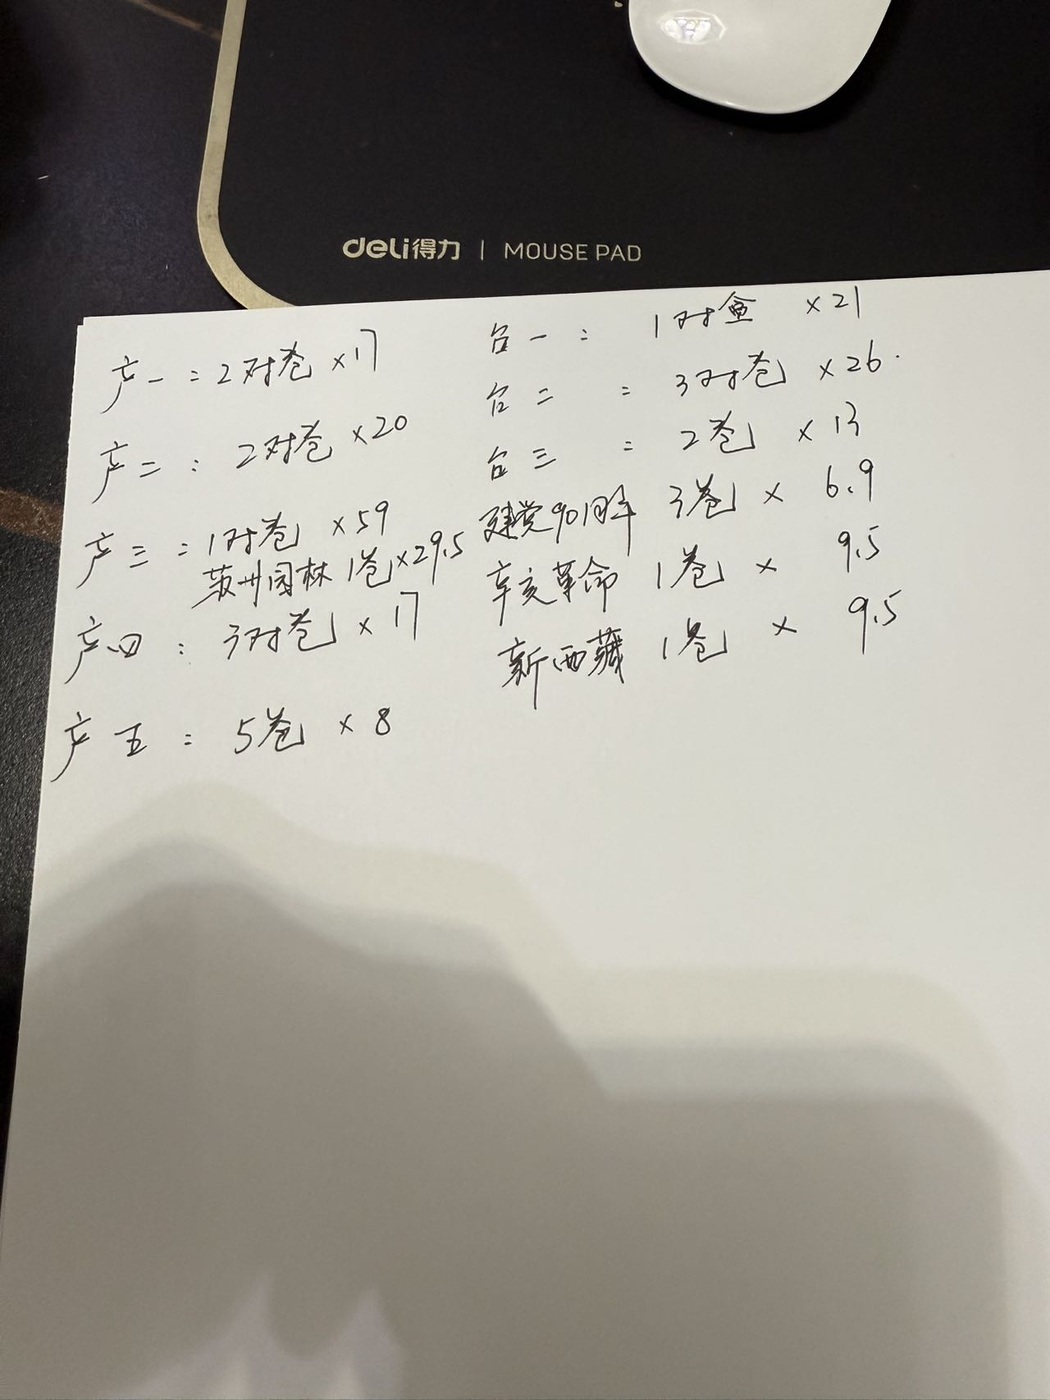 deli得力 | MOUSE PAD
产一：2对卷 ×17
产二：2对卷 ×20
产三：1对卷 ×59
苏州园林 1卷×29.5
产四：3对卷 × 17
产五：5卷 × 8
台一：1对盒 ×21
台二：3对卷 ×26
台三：2卷 ×13
建党90周年 3卷 × 6.9
辛亥革命 1卷 × 9.5
新西藏 1卷 × 9.5